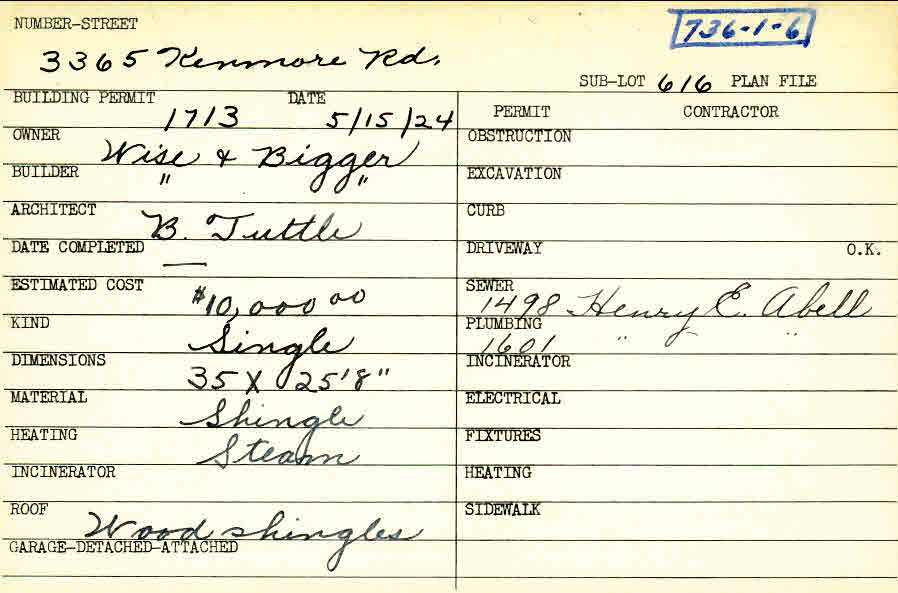 NUMBER-STREET
736-1-6
3365 Kenmore Rd.
SUB-LOT 616 PLAN FILE
BUILDING PERMIT DATE
1713 5/15/24
PERMIT CONTRACTOR
OWNER
Wise & Bigger
OBSTRUCTION
BUILDER
" "
EXCAVATION
ARCHITECT
B. Tuttle
CURB
DATE COMPLETED
—
DRIVEWAY O.K.
ESTIMATED COST
$10,000 00
SEWER
1498 Henry E. Abell
KIND
Single
PLUMBING
1601 " "
DIMENSIONS
35 X 25'8"
INCINERATOR
MATERIAL
Shingle
ELECTRICAL
HEATING
Steam
FIXTURES
INCINERATOR
HEATING
ROOF
Wood shingles
SIDEWALK
GARAGE-DETACHED-ATTACHED